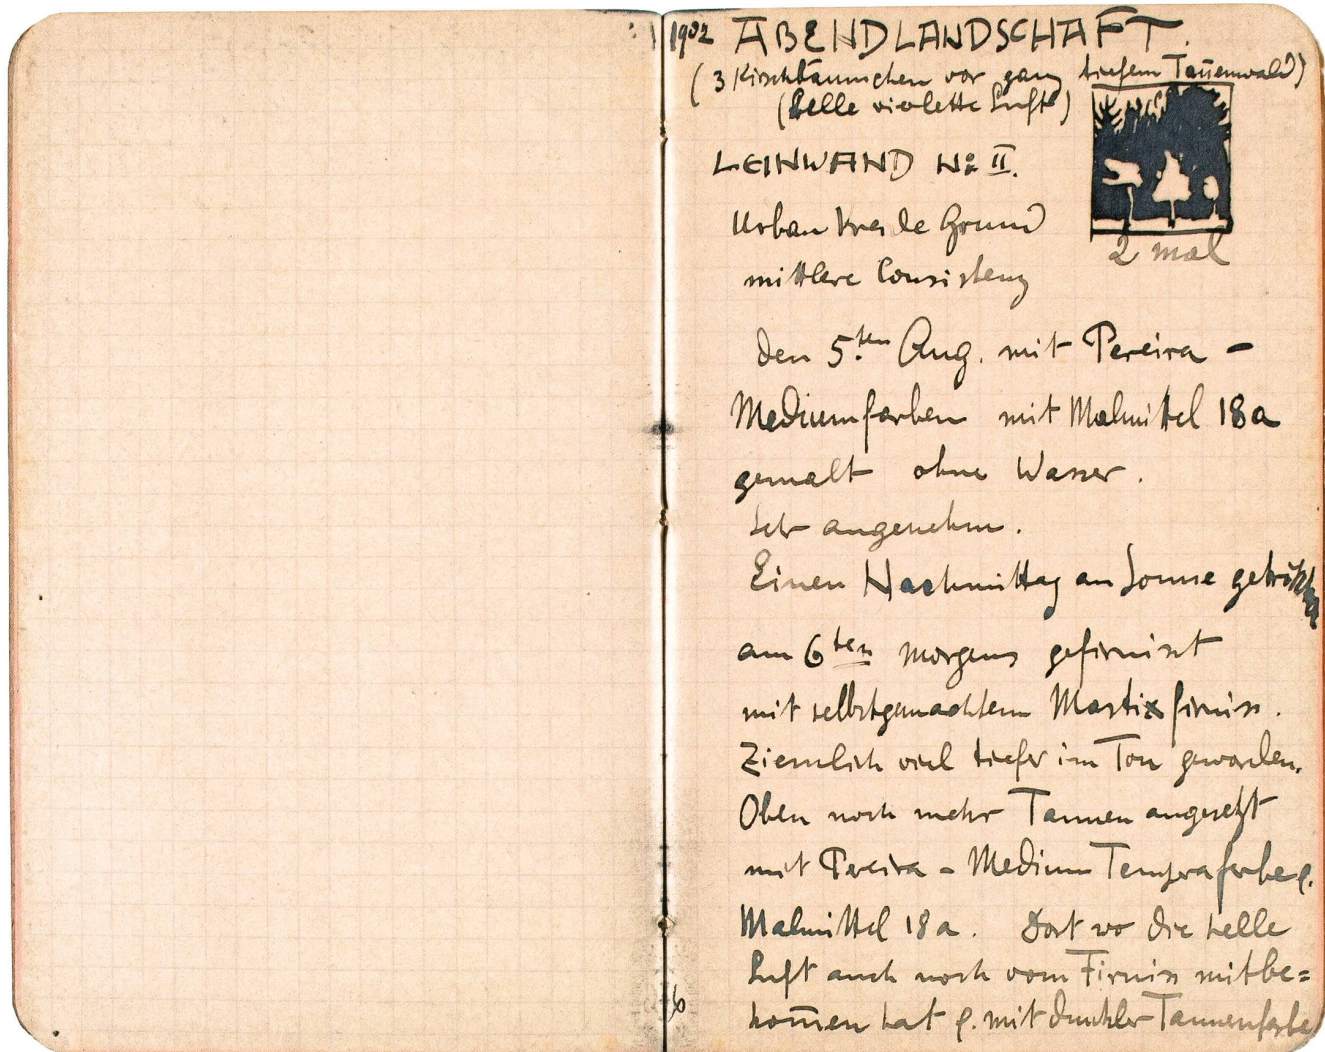 1902 ABENDLANDSCHAFT.
(3 Kirschbäumchen vor ganz tiefem Tan̄enwald)
(helle violette Luft)
LEINWAND No II.
Urban Kreide Grund
2 mal
mittlere Consistenz
den 5ten Aug. mit Pereira -
Mediumfarben mit Malmittel 18a
gemalt ohne Wasser.
Sehr angenehm.
Einen Nachmittag an Sonne getrocknet
am 6ten morgens gefirnisst
mit selbstgemachtem Mastixfirniss.
Ziemlich viel tiefer im Ton geworden.
Oben noch mehr Tannen angesetzt
mit Pereira - Medium Temperafarbe
Malmittel 18a. Dort wo die helle
Luft auch noch vom Firniss mitbe=
kom̄en hat mit dunkler Tannenfarbe
6